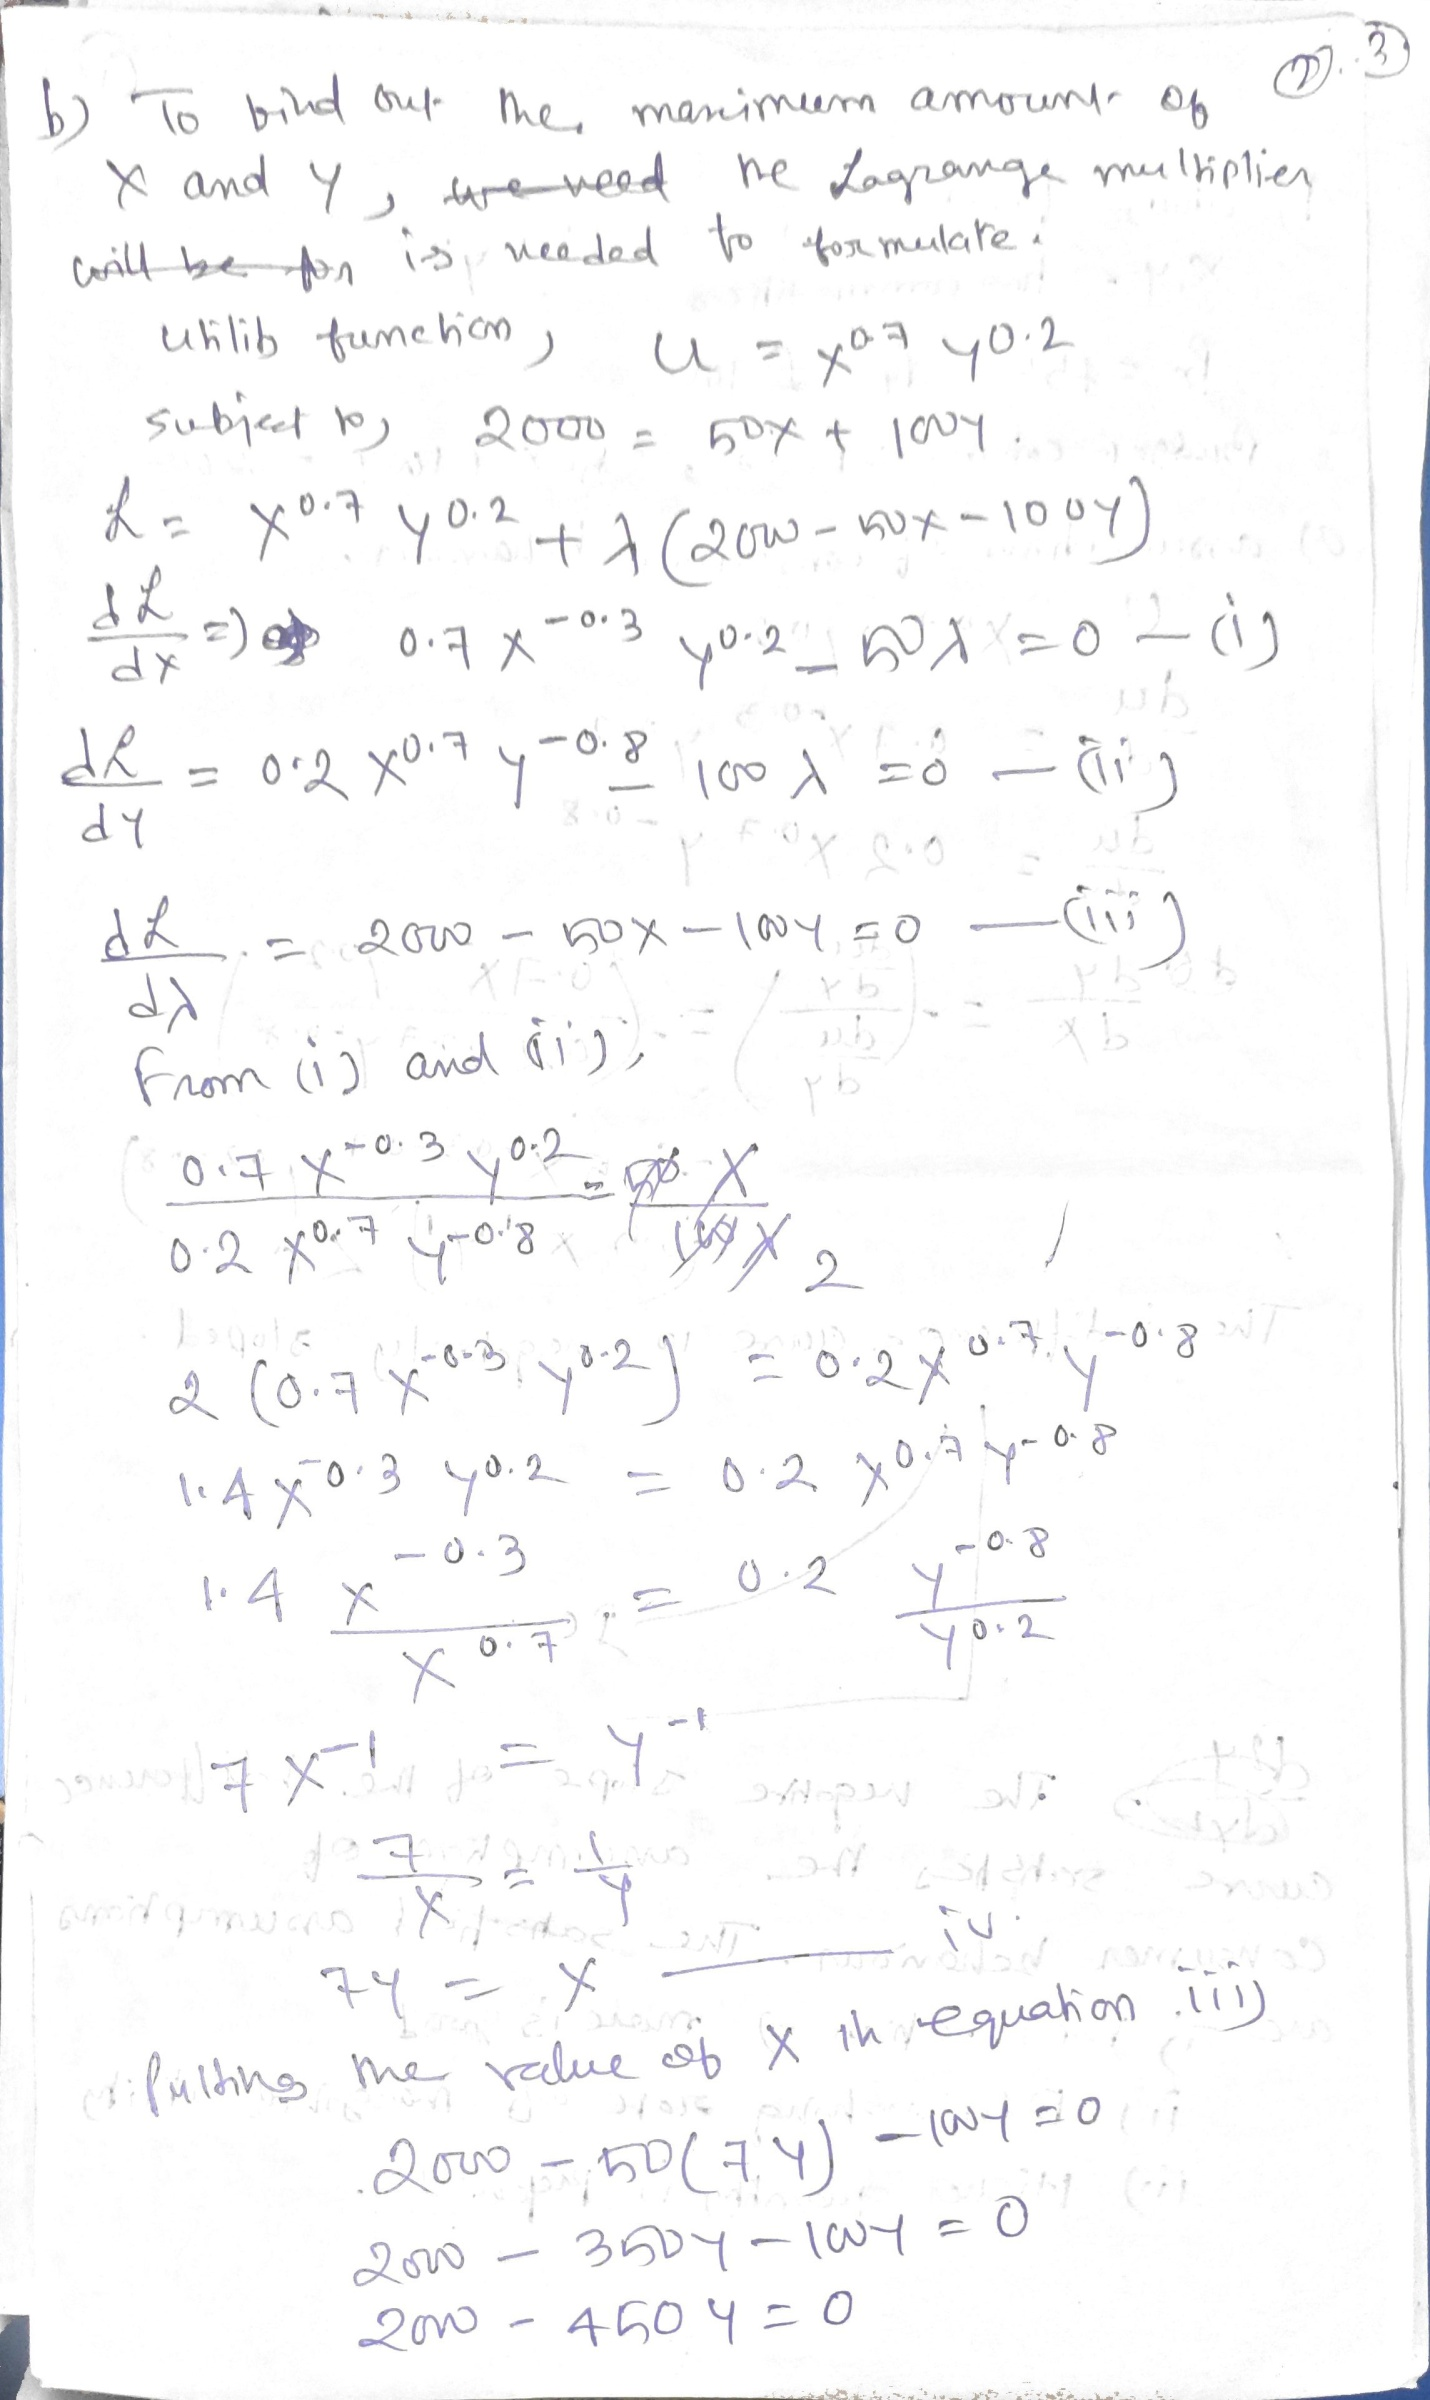 P. 3
b) To find out the maximum amount of
X and Y, we need the Lagrange multiplier
will be for is needed to formulate.
utilib function, U = X^0.7 Y^0.2
subject to, 2000 = 50X + 100Y.
L = X^0.7 Y^0.2 + λ (2000 - 50X - 100Y)
dL/dX => 0.7 X^-0.3 Y^0.2 - 50λ = 0 — (i)
dL/dY = 0.2 X^0.7 Y^-0.8 - 100 λ = 0 — (ii)
dL/dλ = 2000 - 50X - 100Y = 0 — (iii)
From (i) and (ii),
0.7 X^-0.3 Y^0.2 / 0.2 X^0.7 Y^-0.8 = 50 λ / 100 λ 2
2 (0.7 X^-0.3 Y^0.2) = 0.2 X^0.7 Y^-0.8
1.4 X^-0.3 Y^0.2 = 0.2 X^0.7 Y^-0.8
1.4 X^-0.3 / X^0.7 = 0.2 Y^-0.8 / Y^0.2
7 X^-1 = Y^-1
7/X = 1/Y
7Y = X — iv.
Putting the value of X in equation iii)
2000 - 50(7Y) - 100Y = 0
2000 - 350Y - 100Y = 0
2000 - 450Y = 0